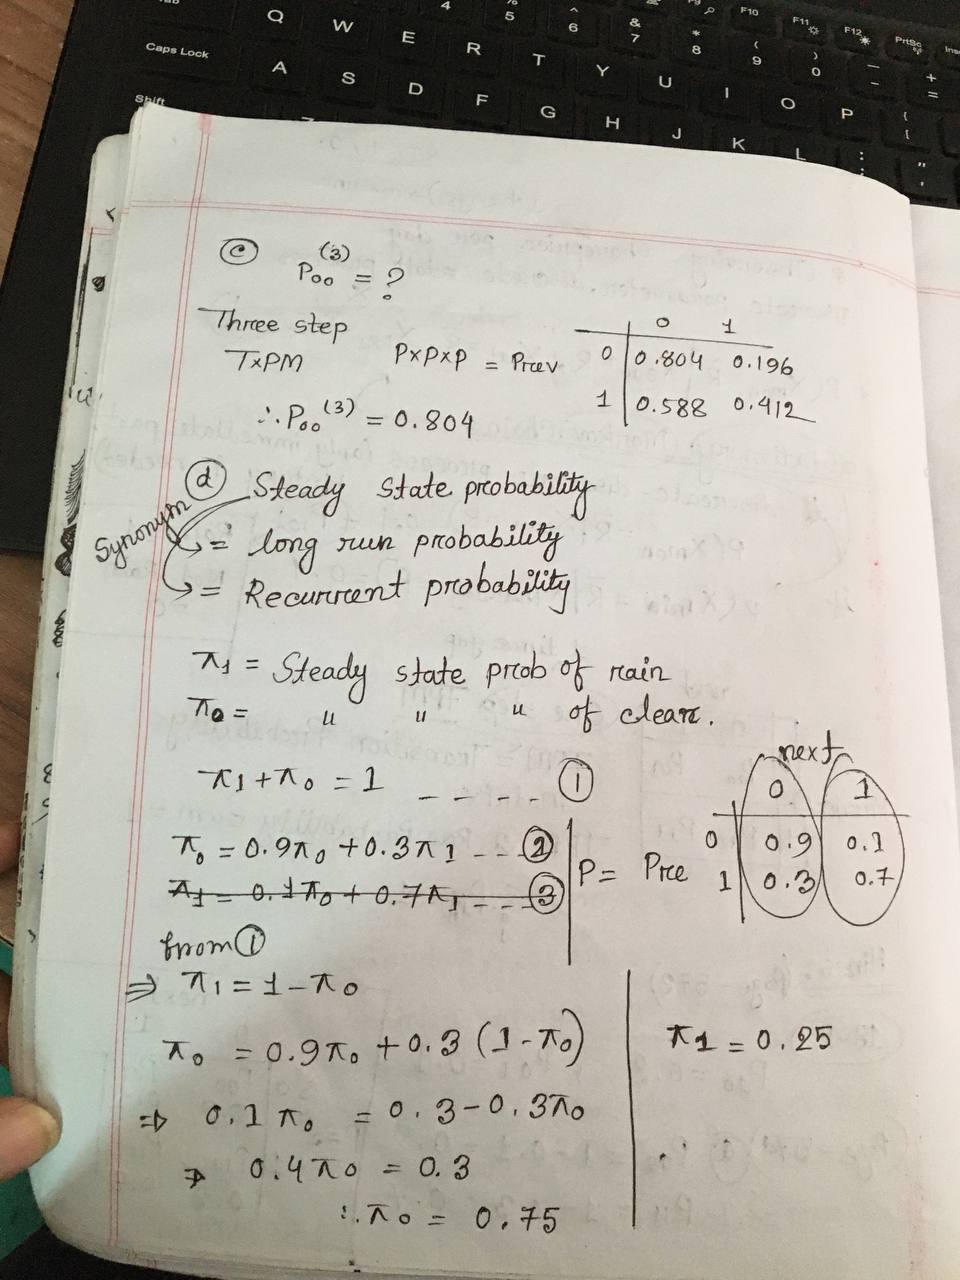 Q W E R T Y U I O P
Caps Lock A S D F G H J K L
Shift
F10 F11 F12 PrtSc
4 5 6 7 8 9 0
ⓒ P₀₀⁽³⁾ = ?
Three step
TxPM P×P×P = Prev
0 1
0 0.804 0.196
1 0.588 0.412
∴ P₀₀⁽³⁾ = 0.804
ⓓ Steady state probability
Synonym
= long run probability
= Recurrent probability
π₁ = Steady state prob of rain
π₀ = " " " of clear.
π₁ + π₀ = 1 - - - - ①
π₀ = 0.9π₀ + 0.3π₁ - - ②
π₁ = 0.1π₀ + 0.7π₁ - - - ③
P = Pre
next
0 1
0 0.9 0.1
1 0.3 0.7
from ①
⇒ π₁ = 1 - π₀
π₀ = 0.9π₀ + 0.3 (1 - π₀)
⇒ 0.1π₀ = 0.3 - 0.3π₀
⇒ 0.4π₀ = 0.3
∴ π₀ = 0.75
π₁ = 0.25